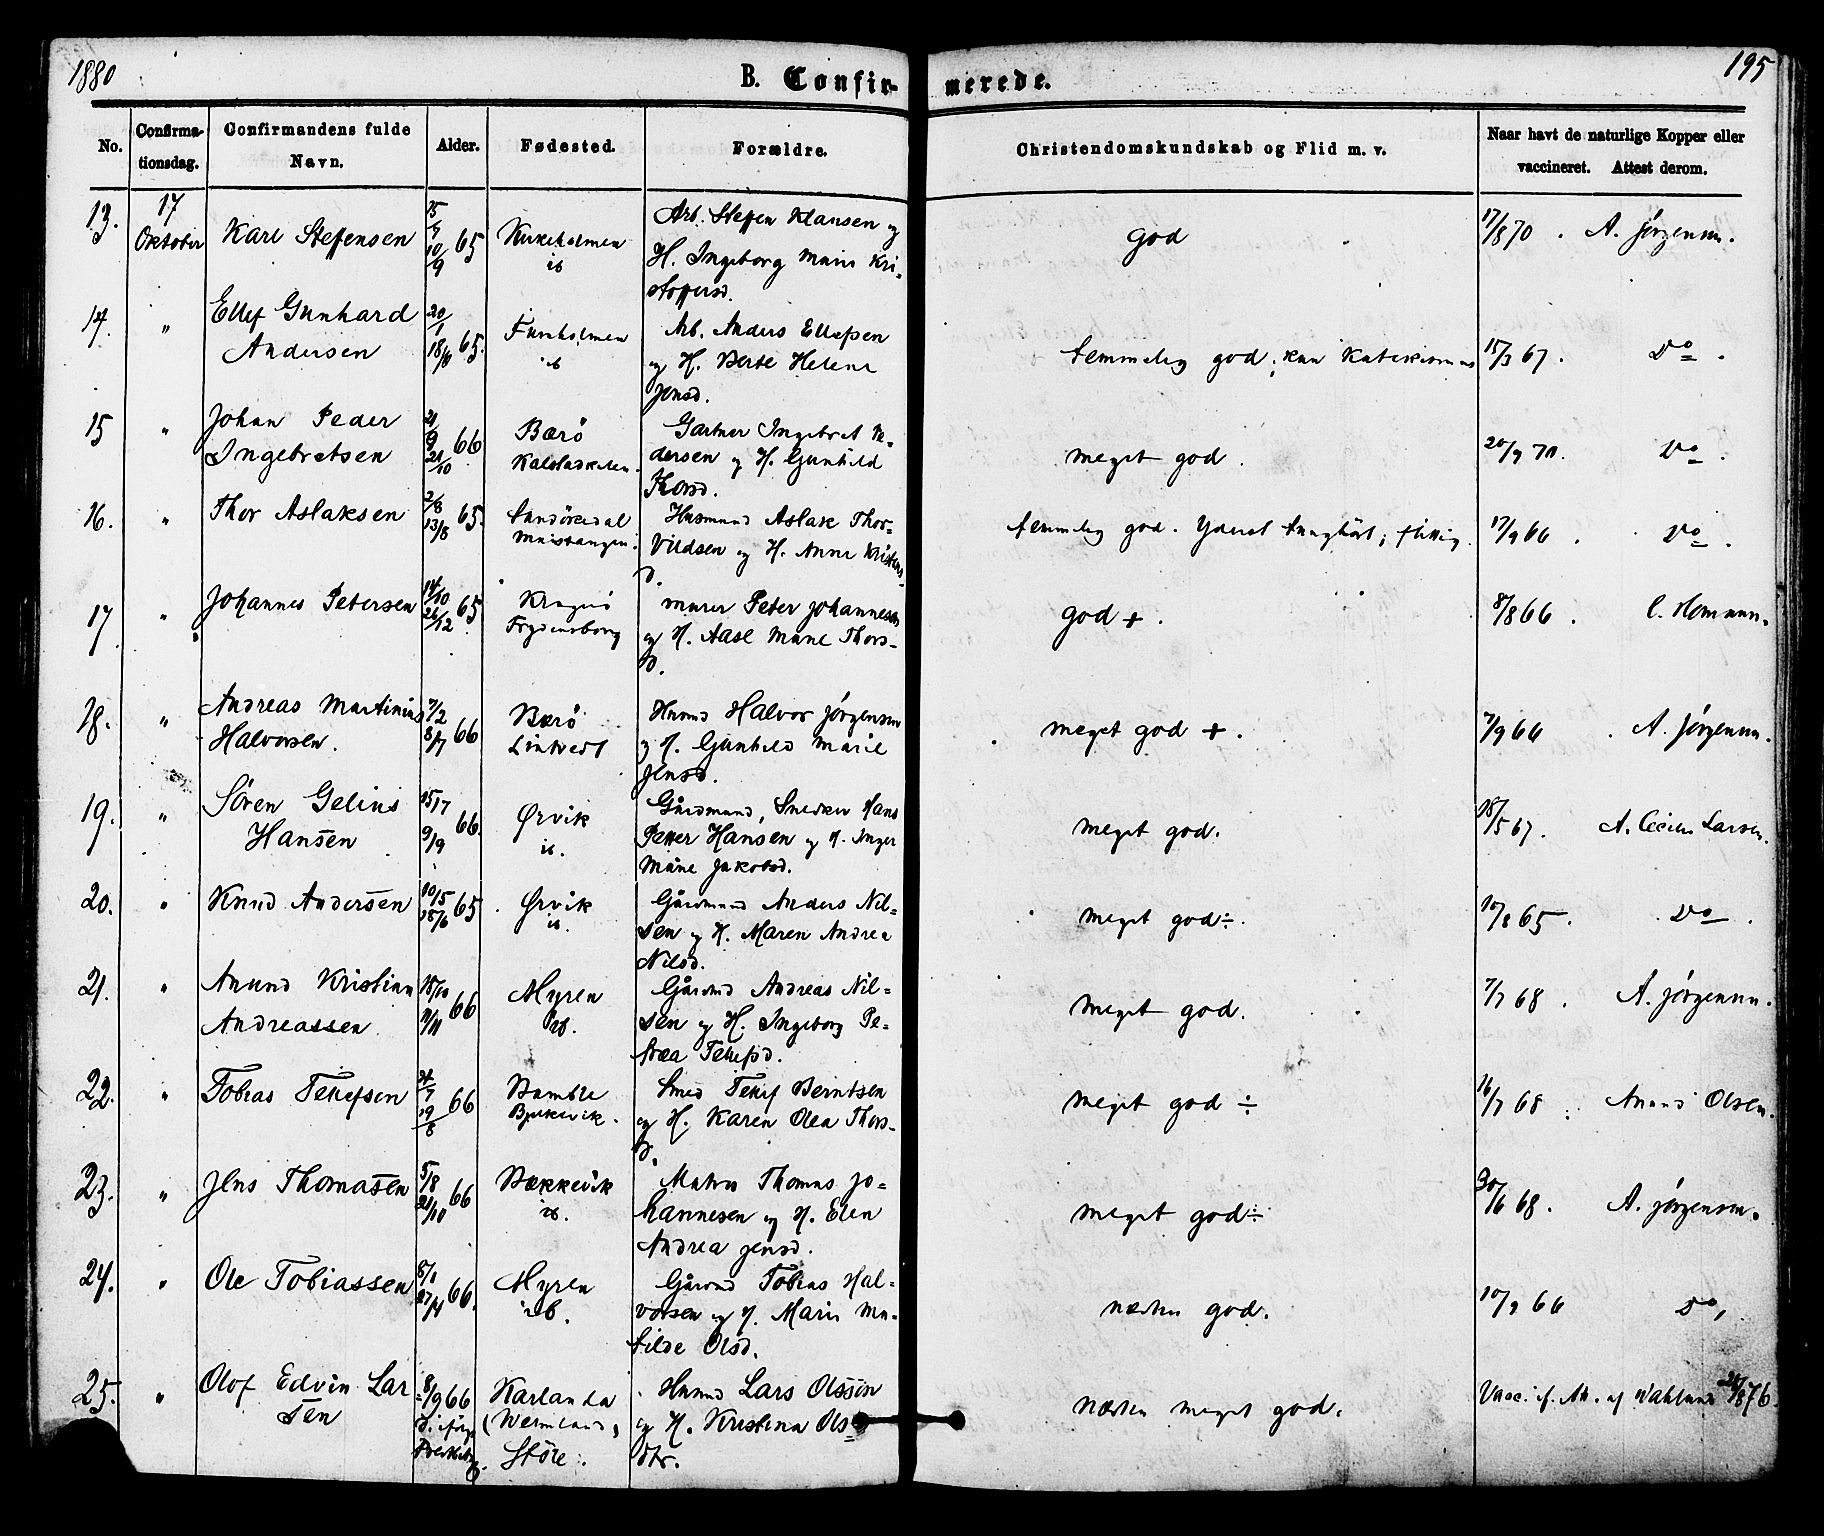 1880
B. Confir-
merede.
195
No.
Confirma-
tionsdag.
Confirmandens fulde
Navn.
Alder.
Fødested.
Forældre.
Christendomskundskab og Flid m. v.
Naar havt de naturlige Kopper eller
vaccineret. Attest derom.
13.
17
Oktober
Karl Steffensen
10/9 65
Kirkeholmen
ib
Arb. Steffen Klausen og
H. Ingeborg Marie Kri-
stoffersd.
god
17/8 70. A. Jørgensen.
14.
"
Ellef Gunhard
Andersen
20/1
18/6 65.
Furuholmen
ib
Arb. Anders Ellefsen
og H. Berte Helene
Jensd.
temmelig god; kun Katekismus
15/3 67. Do.
15
"
Johan Peder
Ingebretsen
21/9
21/10 66
Bærö
Kalstadkilen.
Gartner Ingebret Pe-
dersen og H. Gunhild
Thorsd.
meget god.
20/9 70. Do.
16.
"
Thor Aslaksen
2/8
13/8 65.
Sandökedal
Husmand Aslak Thor-
vildsen og H. Anne Kristens-
d.
temmelig god. Yderst tunghört; flittig.
17/9 66. Do.
17
"
Johannes Petersen
14/10
26/12 65
Kragerö
Frydensborg
Murer Peter Johannesen
og H. Aase Marie Thors-
d.
god +.
8/8 66. C. Homann.
18.
"
Andreas Martinius
Halvorsen.
7/2
8/7 66
Bærö
Lintvedt
Husmd Halvor Jörgensen
og H. Gunhild Marie
Jensd.
meget god +.
7/9 66. A. Jørgensen.
19.
"
Sören Gelius
Hansen
15/7
9/9 66.
Ørvik
ib.
Gårdmand, Snedker Hans
Petter Hansen og H. Inger
Marie Jakobsd.
meget god.
18/5 67. A. Cecilie Larsen.
20.
"
Knud Andersen
10/5
18/6 65.
Ørvik
ib.
Gårdmand Anders Nil-
sen og H. Maren Andrea
Nilsd.
meget god ÷.
10/8 65. Do.
21.
"
Anund Kristian
Andreassen
18/10
11/11 66
Myren
ib.
Gårdmd Andreas Nil-
sen og H. Ingeborg Pe-
trea Tellefsd.
meget god.
7/7 68. A. Jørgensen.
22.
"
Tobias Tellefsen
24/7
19/8 66
Bamble
Bjerkevik.
Smed Tellef Berntsen
og H. Karen Olea Thors-
d.
meget god ÷
16/7 68. Anund Olsen.
23.
"
Jens Thomassen
5/8
21/10 66
Bækkevik
ib.
Matros Thomas Jo-
hannesen og H. Elen
Andrea Jensd.
meget god ÷
30/6 68. A. Jørgensen.
24.
"
Ole Tobiassen
8/1
27/4 66.
Myren
ib.
Gårdmd Tobias Hal-
vorsen og H. Maria Ma-
tilde Olsd.
næsten god.
10/9 66 Do,
25.
"
Olof Edvin Lar
sen
8/9 66
D. ifölge
Karlanda
(Wermland,
Störe.
Husmd Lars Olssön
og H. Kristina Ols-
dtr.
næsten meget god.
Vacc. if. Att. af Wahlund 24/8 76.